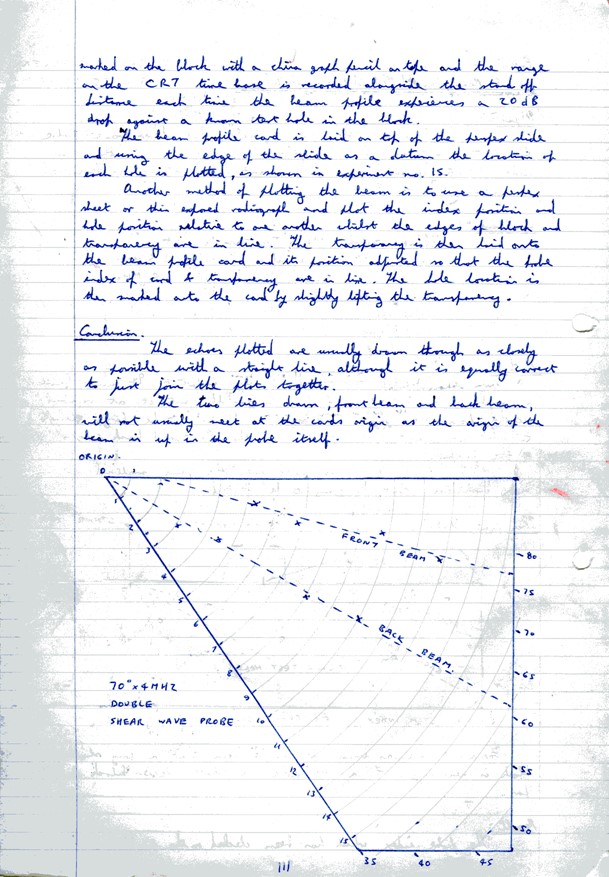 marked on the block with a china graph pencil on tape and the range
on the CRT time base is recorded alongside the stand off
distance each time the beam profile experiences a 20 dB
drop against a known test hole in the block.
The beam profile card is laid on top of the perspex slide
and using the edge of the slide as a datum the location of
each hole is plotted, as shown in experiment no. 15.
Another method of plotting the beam is to use a perspex
sheet or thin exposed radiograph and plot the index position and
hole position relative to one another whilst the edges of block and
transparency are in line. The transparency is then laid onto
the beam profile card and its position adjusted so that the hole
index of card & transparency are in line. The hole location is
then marked onto the card by slightly lifting the transparency.
Conclusion.
The echoes plotted are usually drawn though as closely
as possible with a straight line, although it is equally correct
to just join the plots together.
The two lines drawn, front beam and back beam,
will not usually meet at the cards origin as the origin of the
beam is up in the probe itself.
ORIGIN.
0
1
2
3
4
5
6
7
8
9
10
11
12
13
14
15
FRONT BEAM
BACK BEAM
80
75
70
65
60
55
50
45
40
35
70° x 4 MHZ
DOUBLE
SHEAR WAVE PROBE
111